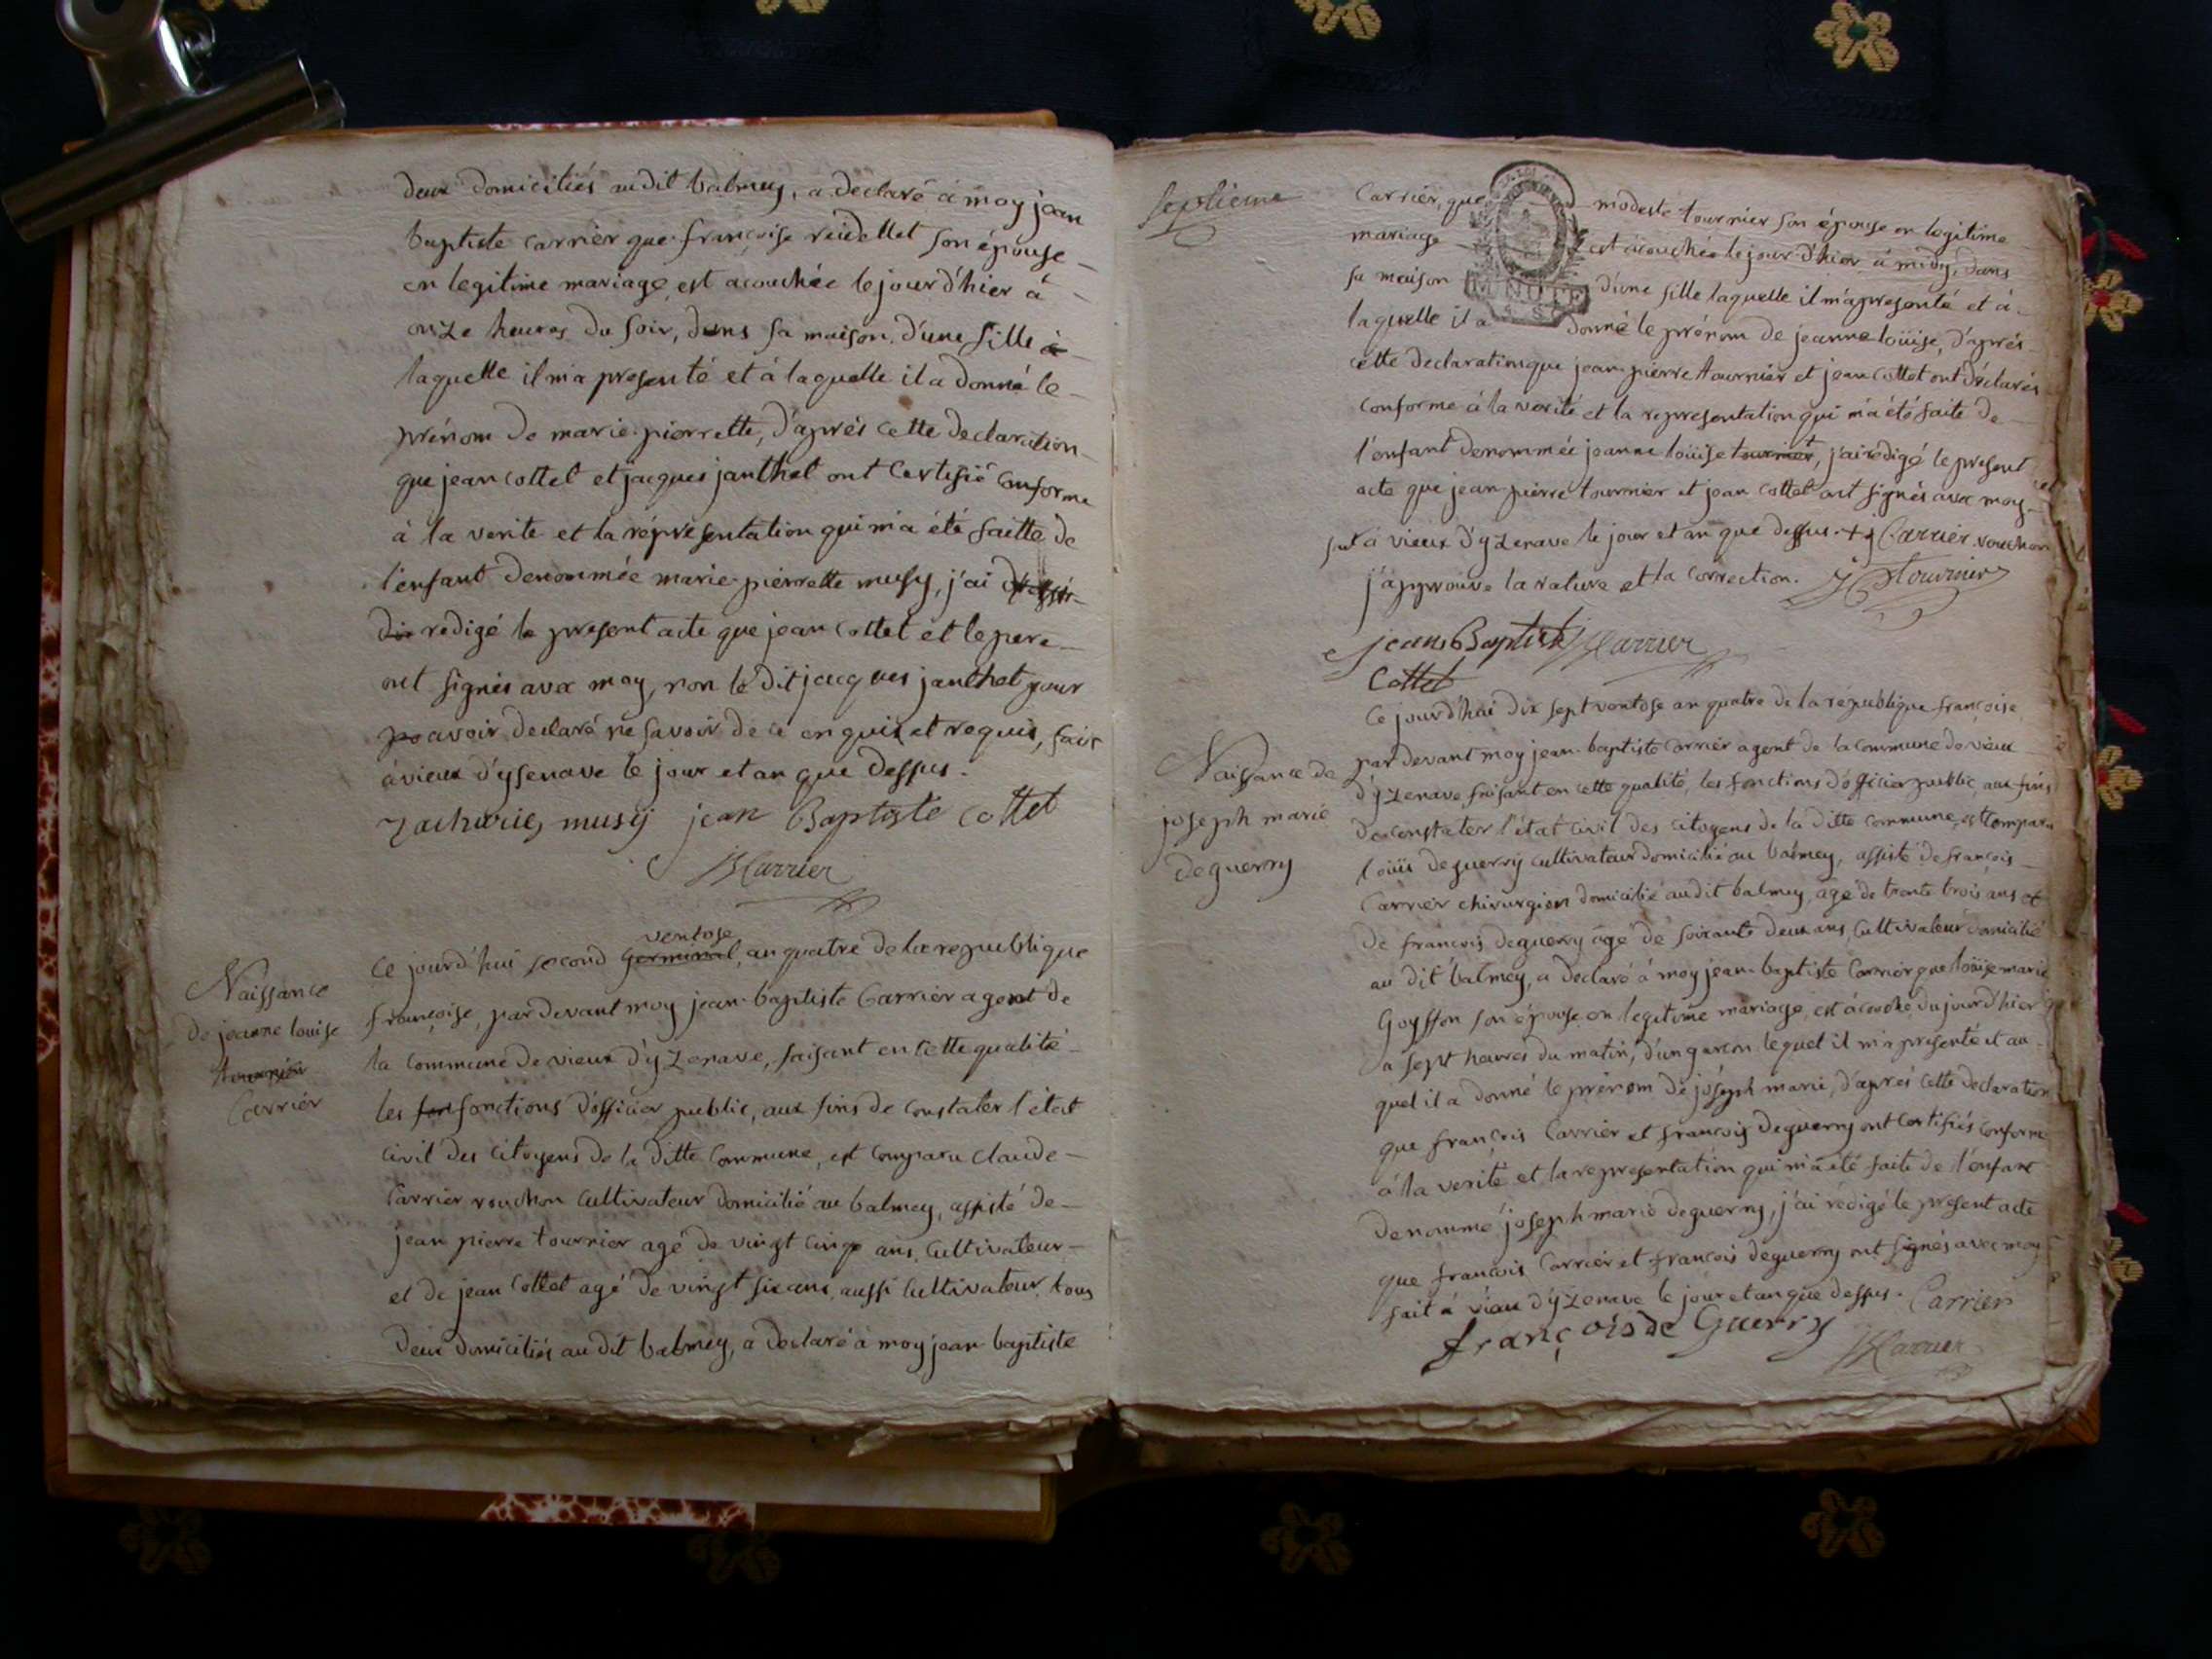 deux domiciliés audit balmey, a declaré a moy jean
baptiste carrier que françoise reidellet son épouse
en legitime mariage est acouchée le jour d'hier à
onze heures du soir, dans sa maison, d'une fille à
laquelle il m'a presenté et à laquelle il a donné le
prénom de marie pierrette, d'aprés cette declaration
que jean cottet et jacques janthet ont certifié conforme
à la verite et la répresentation qui m'a été faitte de
l'enfant denommée marie pierrette musy, j'ai
redigé le present acte que jean cottet et le pere
ont signés avec moy, non le dit jacques janthet pour
avoir declaré ne savoir de ce enquis et requis, fait
à vieux d'ysenave le jour et an que dessus.
zacharie musy jean Baptiste cottet
JBCarrier
Naissance
de jeanne louise
tournier
Carrier
ventose
Ce jourd'hui second germinal, an quatre de la republique
françoise, pardevant moy jean baptiste Carrier agent de
la commune de vieux d'yzenave, faisant en cette qualité
les fon fonctions d'officier public, aux fins de constater l'état
civil des citoyens de la ditte commune, est comparu claude
Carrier vouchon cultivateur domicilié au balmey, assisté de
jean pierre tournier agé de vingt cinq ans, cultivateur
et de jean cottet agé de vingt six ans, aussi cultivateur, tous
deux domiciliés au dit balmey, a declaré a moy jean baptiste
septieme
Carrier, que modeste tournier son épouse en legitime
mariage est acouchée le jour d'hier a midy, dans
sa maison d'une fille laquelle il m'a presenté et à
laquelle il a donné le prénom de jeanne loüise, d'aprés
MINUTE
cette declaration que jean pierre tournier et jean cottet ont déclarés
conforme à la verité et la representation qui m'a été faite de
l'enfant denommée jeanne loüise tournier, j'ai rédigé le present
acte que jean pierre tournier et jean cottet ont signés avec moy
fait à vieux d'yzenave le jour et an que dessus. + Carrier vouchon
j'approuve la rature et la correction. JP tournier
jean Baptiste JBCarrier
Cottet
Naissance de
joseph marie
deguerry
Ce jourd'hui dix sept ventose an quatre de la république françoise
par devant moy jean baptiste Carrier agent de la commune de vieux
d'yzenave faisant en cette qualité, les fonctions d'officier public aux fins
de constater l'état civil des citoyens de la ditte commune, est comparu
loüis deguerry cultivateur domicilié au balmey, assisté de françois
Carrier chirurgien domicilié audit balmey, agé de trente trois ans et
de françois deguerry agé de soixante deux ans, cultivateur domicilié
au dit balmey, a declaré à moy jean baptiste Carrier que loüise marie
Goyffon son épouse en legitime mariage, est acouché du jourd'hier
a sept heures du matin, d'un garcon lequel il m'a presenté et au
quel il a donné le prénom de joseph marie, d'aprés cette declaration
que françois Carrier et françois deguerry ont certifiés conforme
à la verité et la representation qui m'a été faite de l'enfant
denommé joseph marie deguerry, j'ai rédigé le present acte
que françois Carrier et françois deguerry ont signés avec moy
fait à vieux d'yzenave le jour et an que dessus. Carrier
françois de Guerry JBCarrier